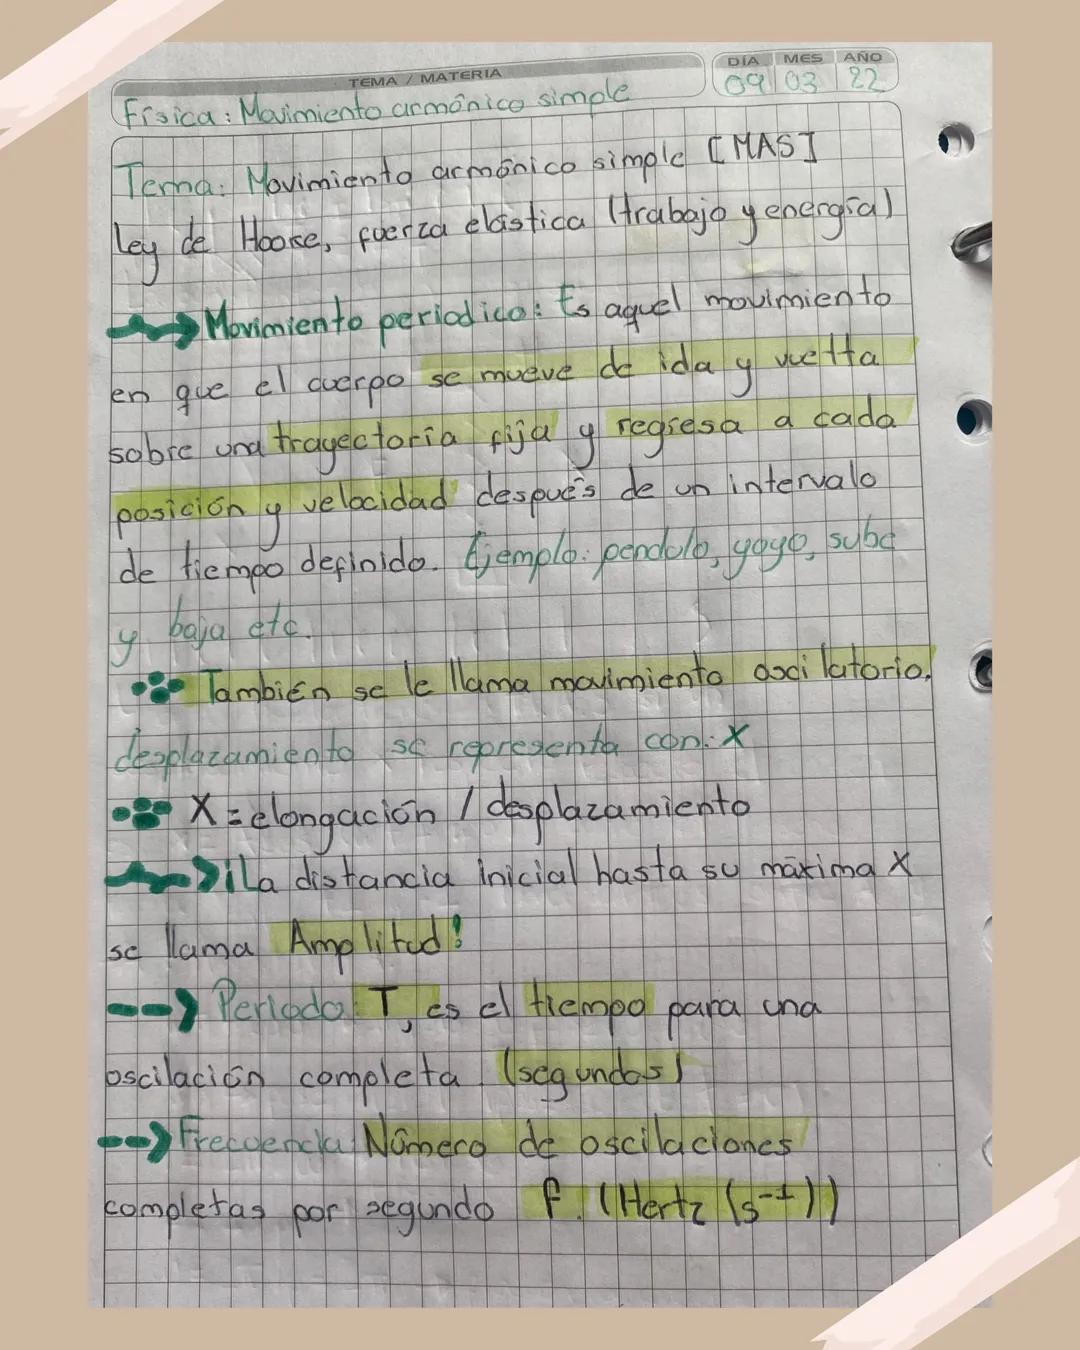 TEMA / MATERIA
DÍA MES AÑO
09 03 22
Física: Movimiento armónico simple
Tema: Movimiento armónico simple [MAS]
Ley de Hooke, fuerza elástica (trabajo y energía)
Movimiento periodico: Es aquel movimiento
en que el cuerpo se mueve de ida y vuelta
sobre una trayectoria fija y regresa a cada
posición y velocidad después de un intervalo
de tiempo definido. Ejemplo: pendulo, yoyo, sube
y baja etc.
También se le llama movimiento oscilatorio,
desplazamiento se representa con: X
X = elongación / desplazamiento
¡La distancia inicial hasta su máxima X
se llama Amplitud!
Periodo: T, es el tiempo para una
oscilación completa (segundos)
Frecuencia: Número de oscilaciones
completas por segundo f. (Hertz (s⁻¹))